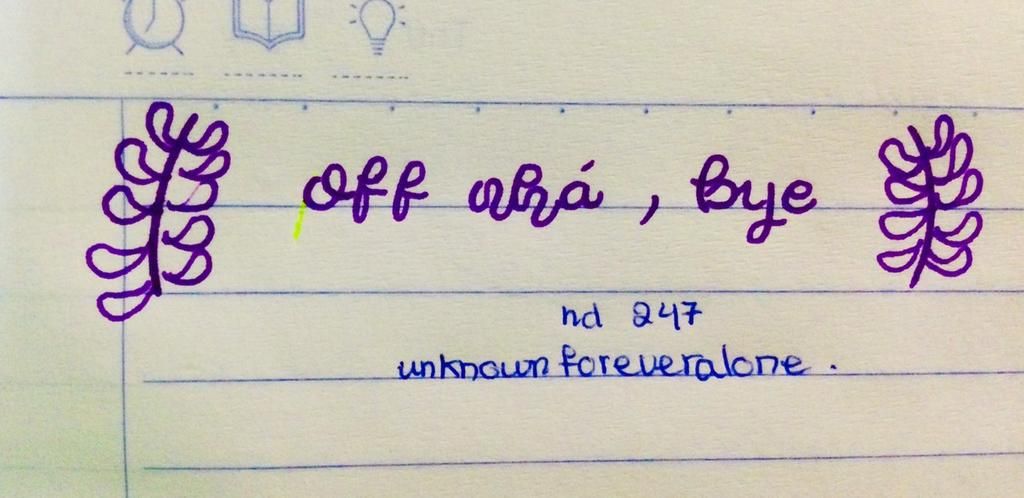 Off nhá, Bye
nd 247
unknownforeveralone.